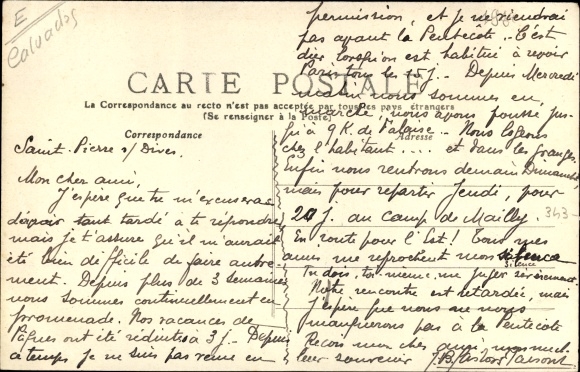 E
Calvados
CARTE POSTALE
La Correspondance au recto n'est pas acceptée par tous les pays étrangers
(Se renseigner à la Poste)
Correspondance
Saint-Pierre s/ Dives.
Mon cher ami,
J'espère que tu m'excuseras
d'avoir tant tardé à te répondre
mais je t'assure qu'il m'aurait
été bien difficile de faire autre-
ment. Depuis plus de 3 semaines
nous sommes continuellement en
promenade. Nos vacances de
Pâques ont été réduites à 3 j. Depuis
ce temps je ne suis pas revenu en
permission, et je ne reviendrai
pas avant la Pentecôte. C'est
dur lorsqu'on est habitué à revoir
Paris tous les 15 j. Depuis Mercredi
matin nous sommes en
marche, nous avons poussé jus-
qu'à 9 K. de Falaise. Nous logeons
Adresse
chez l'habitant .... et dans les granges
Enfin nous rentrons demain Dimanche
mais pour repartir Jeudi, pour
20 j. au camp de Mailly.
343
En route pour l'Est! Tous mes
amis me reprochent mon silence
silence
Tu dois, toi-même me juger sévèrement.
Notre rencontre est retardée, mais
j'espère que nous ne nous
manquerons pas à la Pentecôte
Reçois mon cher ami mon meil-
leur souvenir